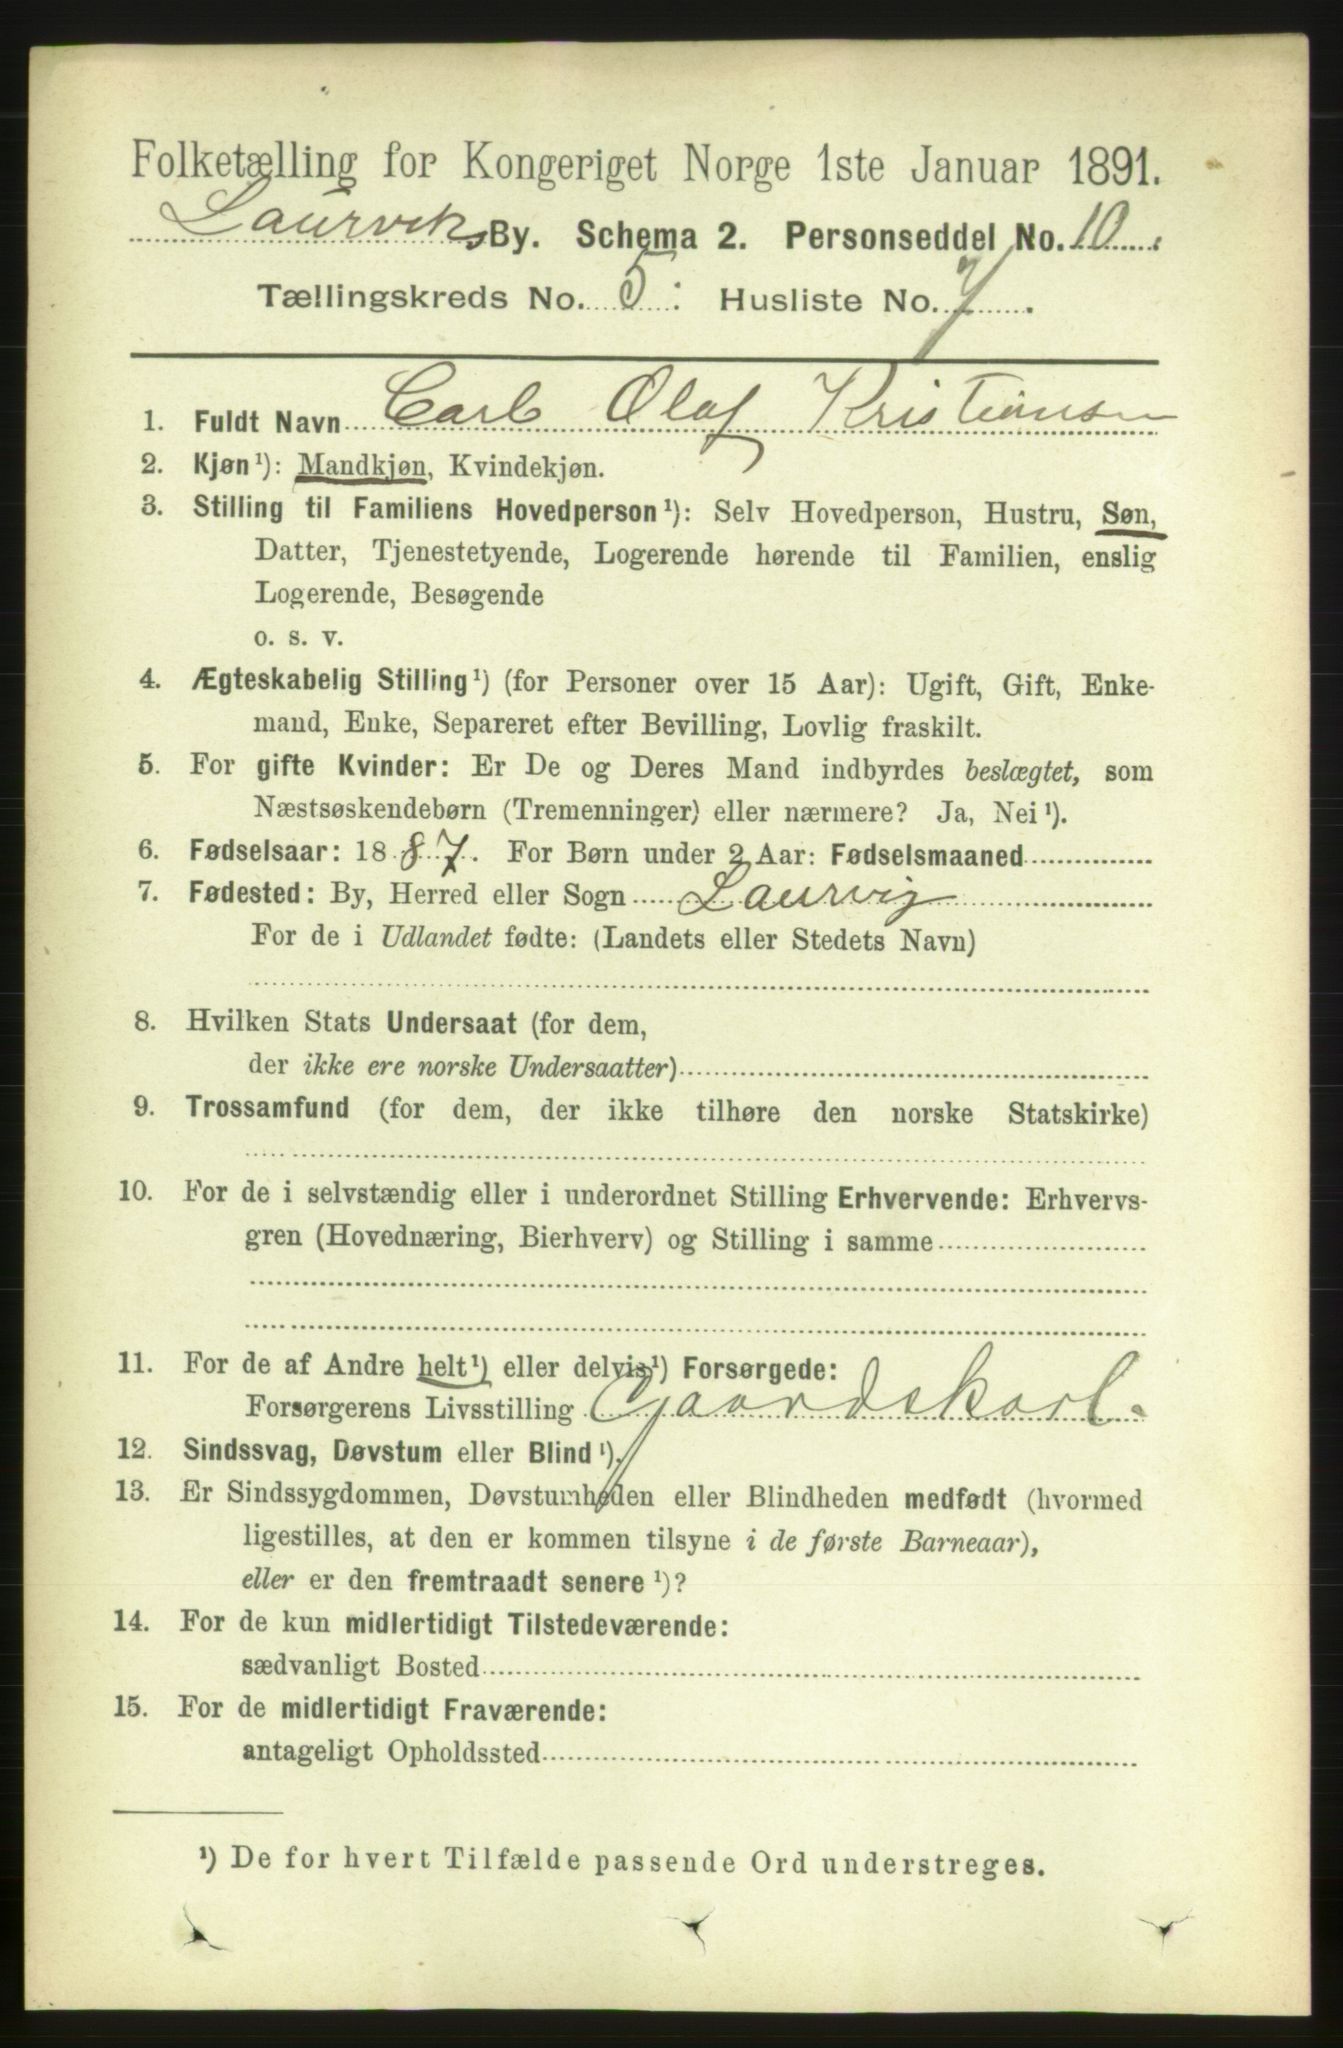 Folketælling for Kongeriget Norge 1ste Januar 1891.
Laurviks By. Schema 2. Personseddel No. 10.
Tællingskreds No. 5. Husliste No. 7.
1. Fuldt Navn Carl Olaf Kristiansen
2. Kjøn ¹): Mandkjøn, Kvindekjøn.
3. Stilling til Familiens Hovedperson ¹): Selv Hovedperson, Hustru, Søn,
Datter, Tjenestetyende, Logerende hørende til Familien, enslig
Logerende, Besøgende
o. s. v.
4. Ægteskabelig Stilling ¹) (for Personer over 15 Aar): Ugift, Gift, Enke-
mand, Enke, Separeret efter Bevilling, Lovlig fraskilt.
5. For gifte Kvinder: Er De og Deres Mand indbyrdes beslægtet, som
Næstsøskendebørn (Tremenninger) eller nærmere? Ja, Nei ¹).
6. Fødselsaar: 1887. For Børn under 2 Aar: Fødselsmaaned
7. Fødested: By, Herred eller Sogn Laurvig
For de i Udlandet fødte: (Landets eller Stedets Navn)
8. Hvilken Stats Undersaat (for dem,
der ikke ere norske Undersaatter)
9. Trossamfund (for dem, der ikke tilhøre den norske Statskirke)
10. For de i selvstændig eller i underordnet Stilling Erhvervende: Erhvervs-
gren (Hovednæring, Bierhverv) og Stilling i samme
11. For de af Andre helt ¹) eller delvis ¹) Forsørgede:
Forsørgerens Livsstilling Gaardskarl.
12. Sindssvag, Døvstum eller Blind ¹).
13. Er Sindssygdommen, Døvstumheden eller Blindheden medfødt (hvormed
ligestilles, at den er kommen tilsyne i de første Barneaar),
eller er den fremtraadt senere ¹)?
14. For de kun midlertidigt Tilstedeværende:
sædvanligt Bosted
15. For de midlertidigt Fraværende:
antageligt Opholdssted
¹) De for hvert Tilfælde passende Ord understreges.